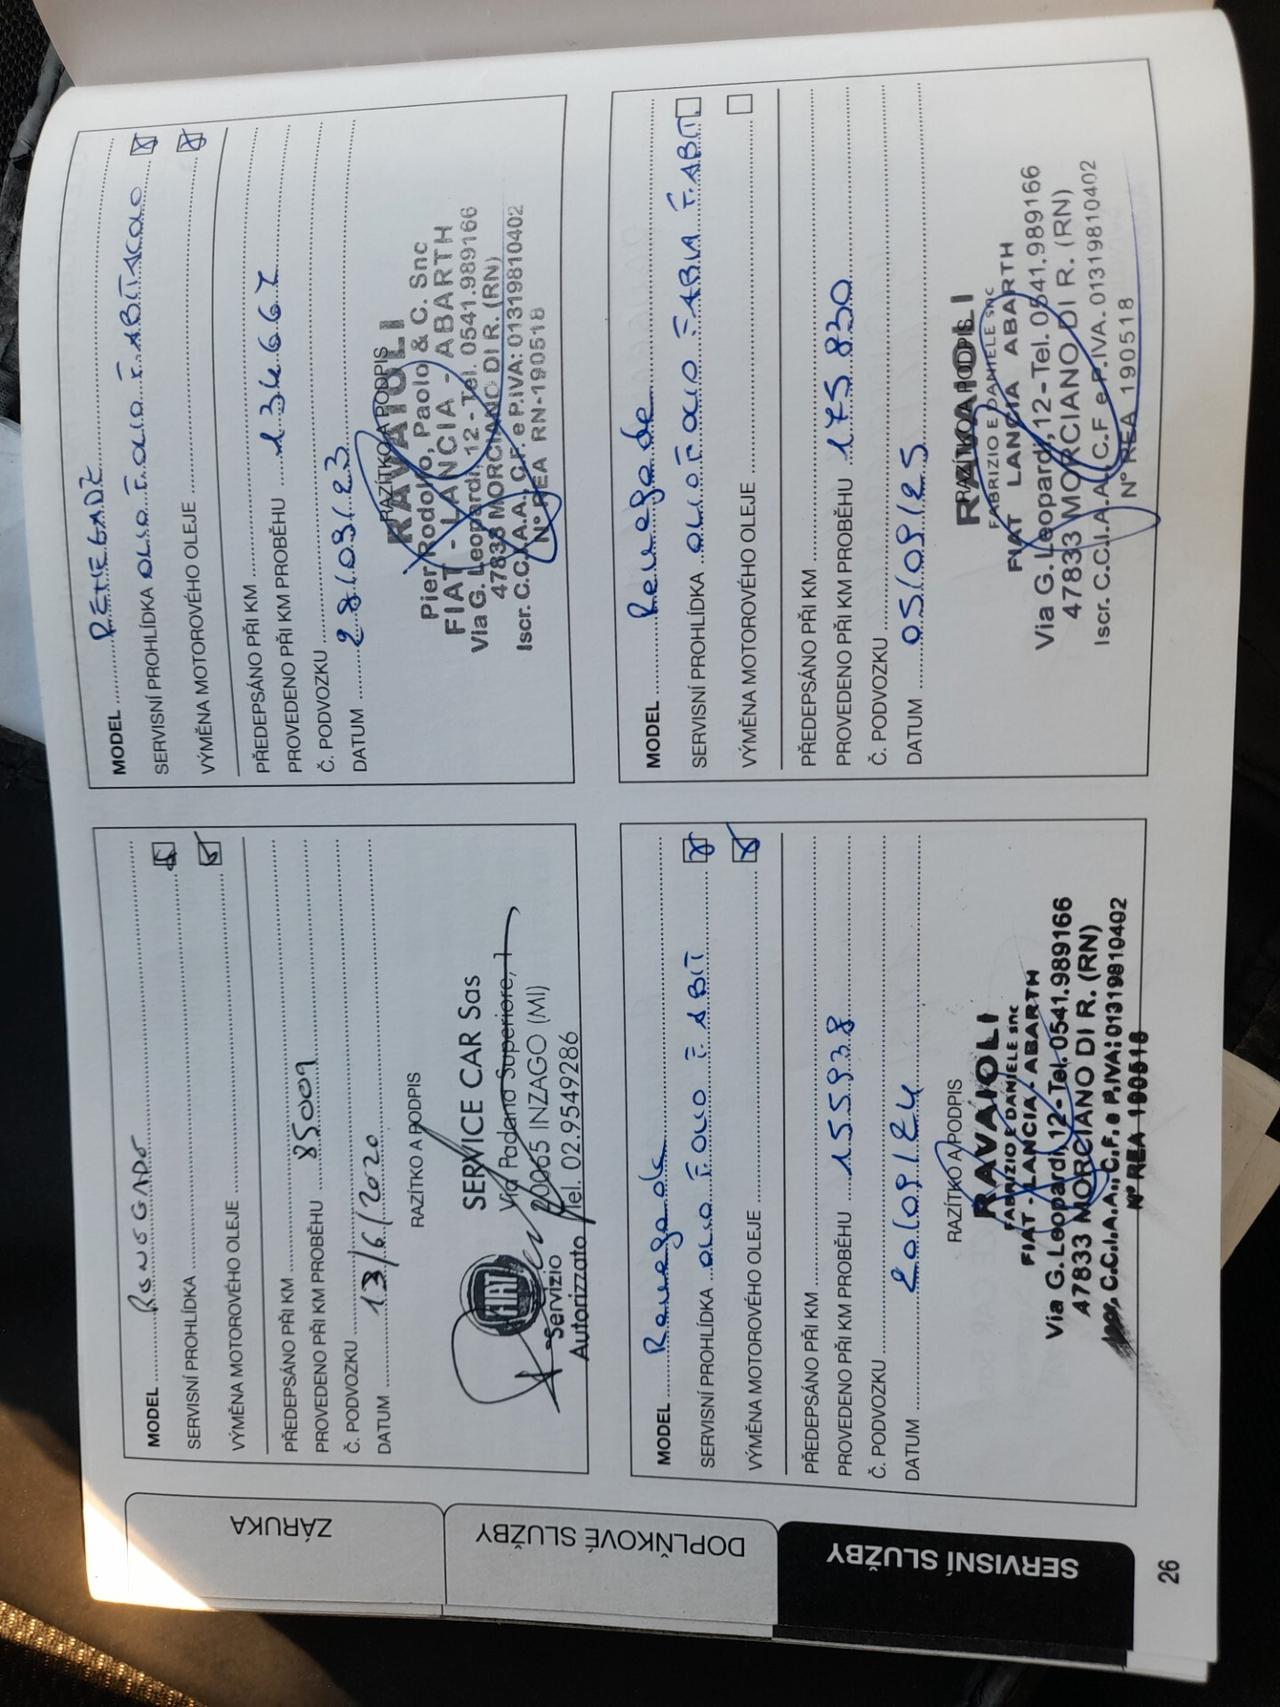 MODEL RENEGADO
SERVISNÍ PROHLÍDKA
VÝMĚNA MOTOROVÉHO OLEJE
PŘEDEPSÁNO PŘI KM
PROVEDENO PŘI KM PROBĚHU 85009
Č. PODVOZKU
DATUM 13/6/2020
RAZÍTKO A PODPIS
SERVICE CAR Sas
Via Padana Superiore, 1
20065 INZAGO (MI)
Tel. 02.9549286
FIAT
Servizio
Autorizzato
MODEL RENEGADE
SERVISNÍ PROHLÍDKA OLIO F. OLIO F. ABITACOLO
VÝMĚNA MOTOROVÉHO OLEJE
PŘEDEPSÁNO PŘI KM
PROVEDENO PŘI KM PROBĚHU 134667
Č. PODVOZKU
DATUM 28/09/23
RAZÍTKO A PODPIS
RAVAIOLI
Pier Rodolfo, Paolo & C. Snc
FIAT - LANCIA - ABARTH
Via G. Leopardi, 12 - Tel. 0541.989166
47833 MORCIANO DI R. (RN)
Iscr. C.C.I.A.A., C.F. e P.IVA: 01319810402
N° REA RN-190518
MODEL Renegade
SERVISNÍ PROHLÍDKA OLIO F. OLIO F. ABIT
VÝMĚNA MOTOROVÉHO OLEJE
PŘEDEPSÁNO PŘI KM
PROVEDENO PŘI KM PROBĚHU 155938
Č. PODVOZKU
DATUM 20/09/24
RAZÍTKO A PODPIS
RAVAIOLI
FABRIZIO E DANIELE snc
FIAT - LANCIA - ABARTH
Via G. Leopardi, 12 - Tel. 0541.989166
47833 MORCIANO DI R. (RN)
Iscr. C.C.I.A.A., C.F. e P.IVA: 01319810402
N° REA 190518
MODEL Renegade
SERVISNÍ PROHLÍDKA OLIO F. OLIO F. ARIA F. ABIT.
VÝMĚNA MOTOROVÉHO OLEJE
PŘEDEPSÁNO PŘI KM
PROVEDENO PŘI KM PROBĚHU 175830
Č. PODVOZKU
DATUM 05/09/25
RAZÍTKO A PODPIS
RAVAIOLI
FABRIZIO E DANIELE snc
FIAT LANCIA ABARTH
Via G. Leopardi, 12 - Tel. 0541.989166
47833 MORCIANO DI R. (RN)
Iscr. C.C.I.A.A., C.F. e P.IVA. 01319810402
N° REA 190518
ZÁRUKA
DOPLŇKOVÉ SLUŽBY
SERVISNÍ SLUŽBY
26